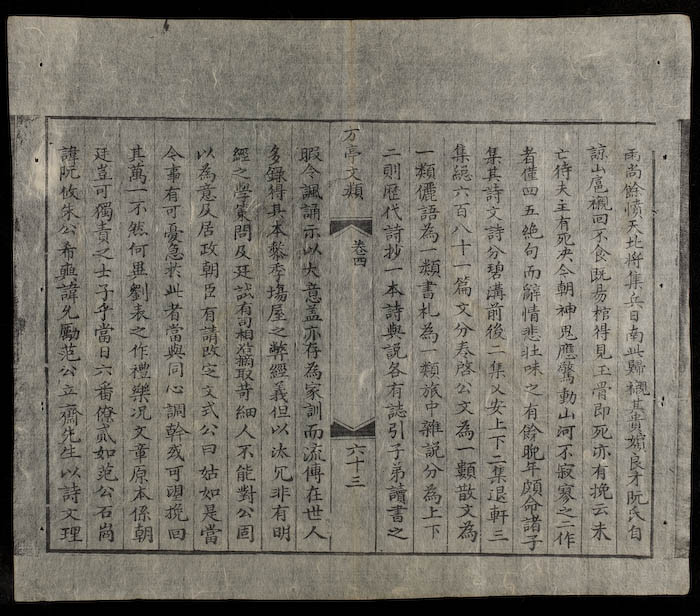 兩尚餘憤天北將集兵日南此歸櫬其貴嬪良才阮氏自
諒山扈襯回不食既易棺得見玉骨即死亦有挽云未
亡待夫主有死决今朝神鬼應驚動山河不寂寥之二作
者僅四五絶句而辭情悲壯味之有餘晚年頗命諸子
集其詩文詩分碧溝前後二集乂安上下二集退軒三
集總六百八十一篇文分奏啓公文為一類散文為
一類儷語為一類書札為一類旅中雜説分為上下
二則歷代詩抄一本詩與説各有誌引子弟讀書之
方亭文類
卷四
六十三
暇令諷誦示以大意盖亦存為家訓而流傳在世人
多錄得其本黎季場屋之弊經義但以汰冗非有明
經之學策問及廷試有司相沿猶取苛細人不能對公固
以為意及居政朝臣有請改定文式公曰姑如是當
今事有可憂急於此者當與同心調幹或可望挽回
其萬一不然何異劉表之作禮樂况文章原本係朝
廷豈可獨責之士子乎當日六番僚貳如范公石崗
諱阮攸朱公希典諱允勵范公立齋先生以詩文理